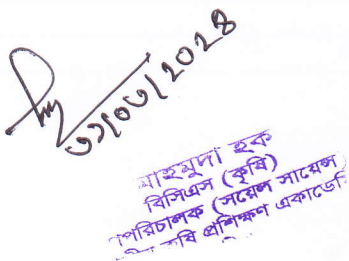 ৩১/০৩/২০২৪
মাহমুদা হক
বিসিএস (কৃষি)
উপপরিচালক (সয়েল সায়েন্স)
কৃষি প্রশিক্ষণ একাডেমি